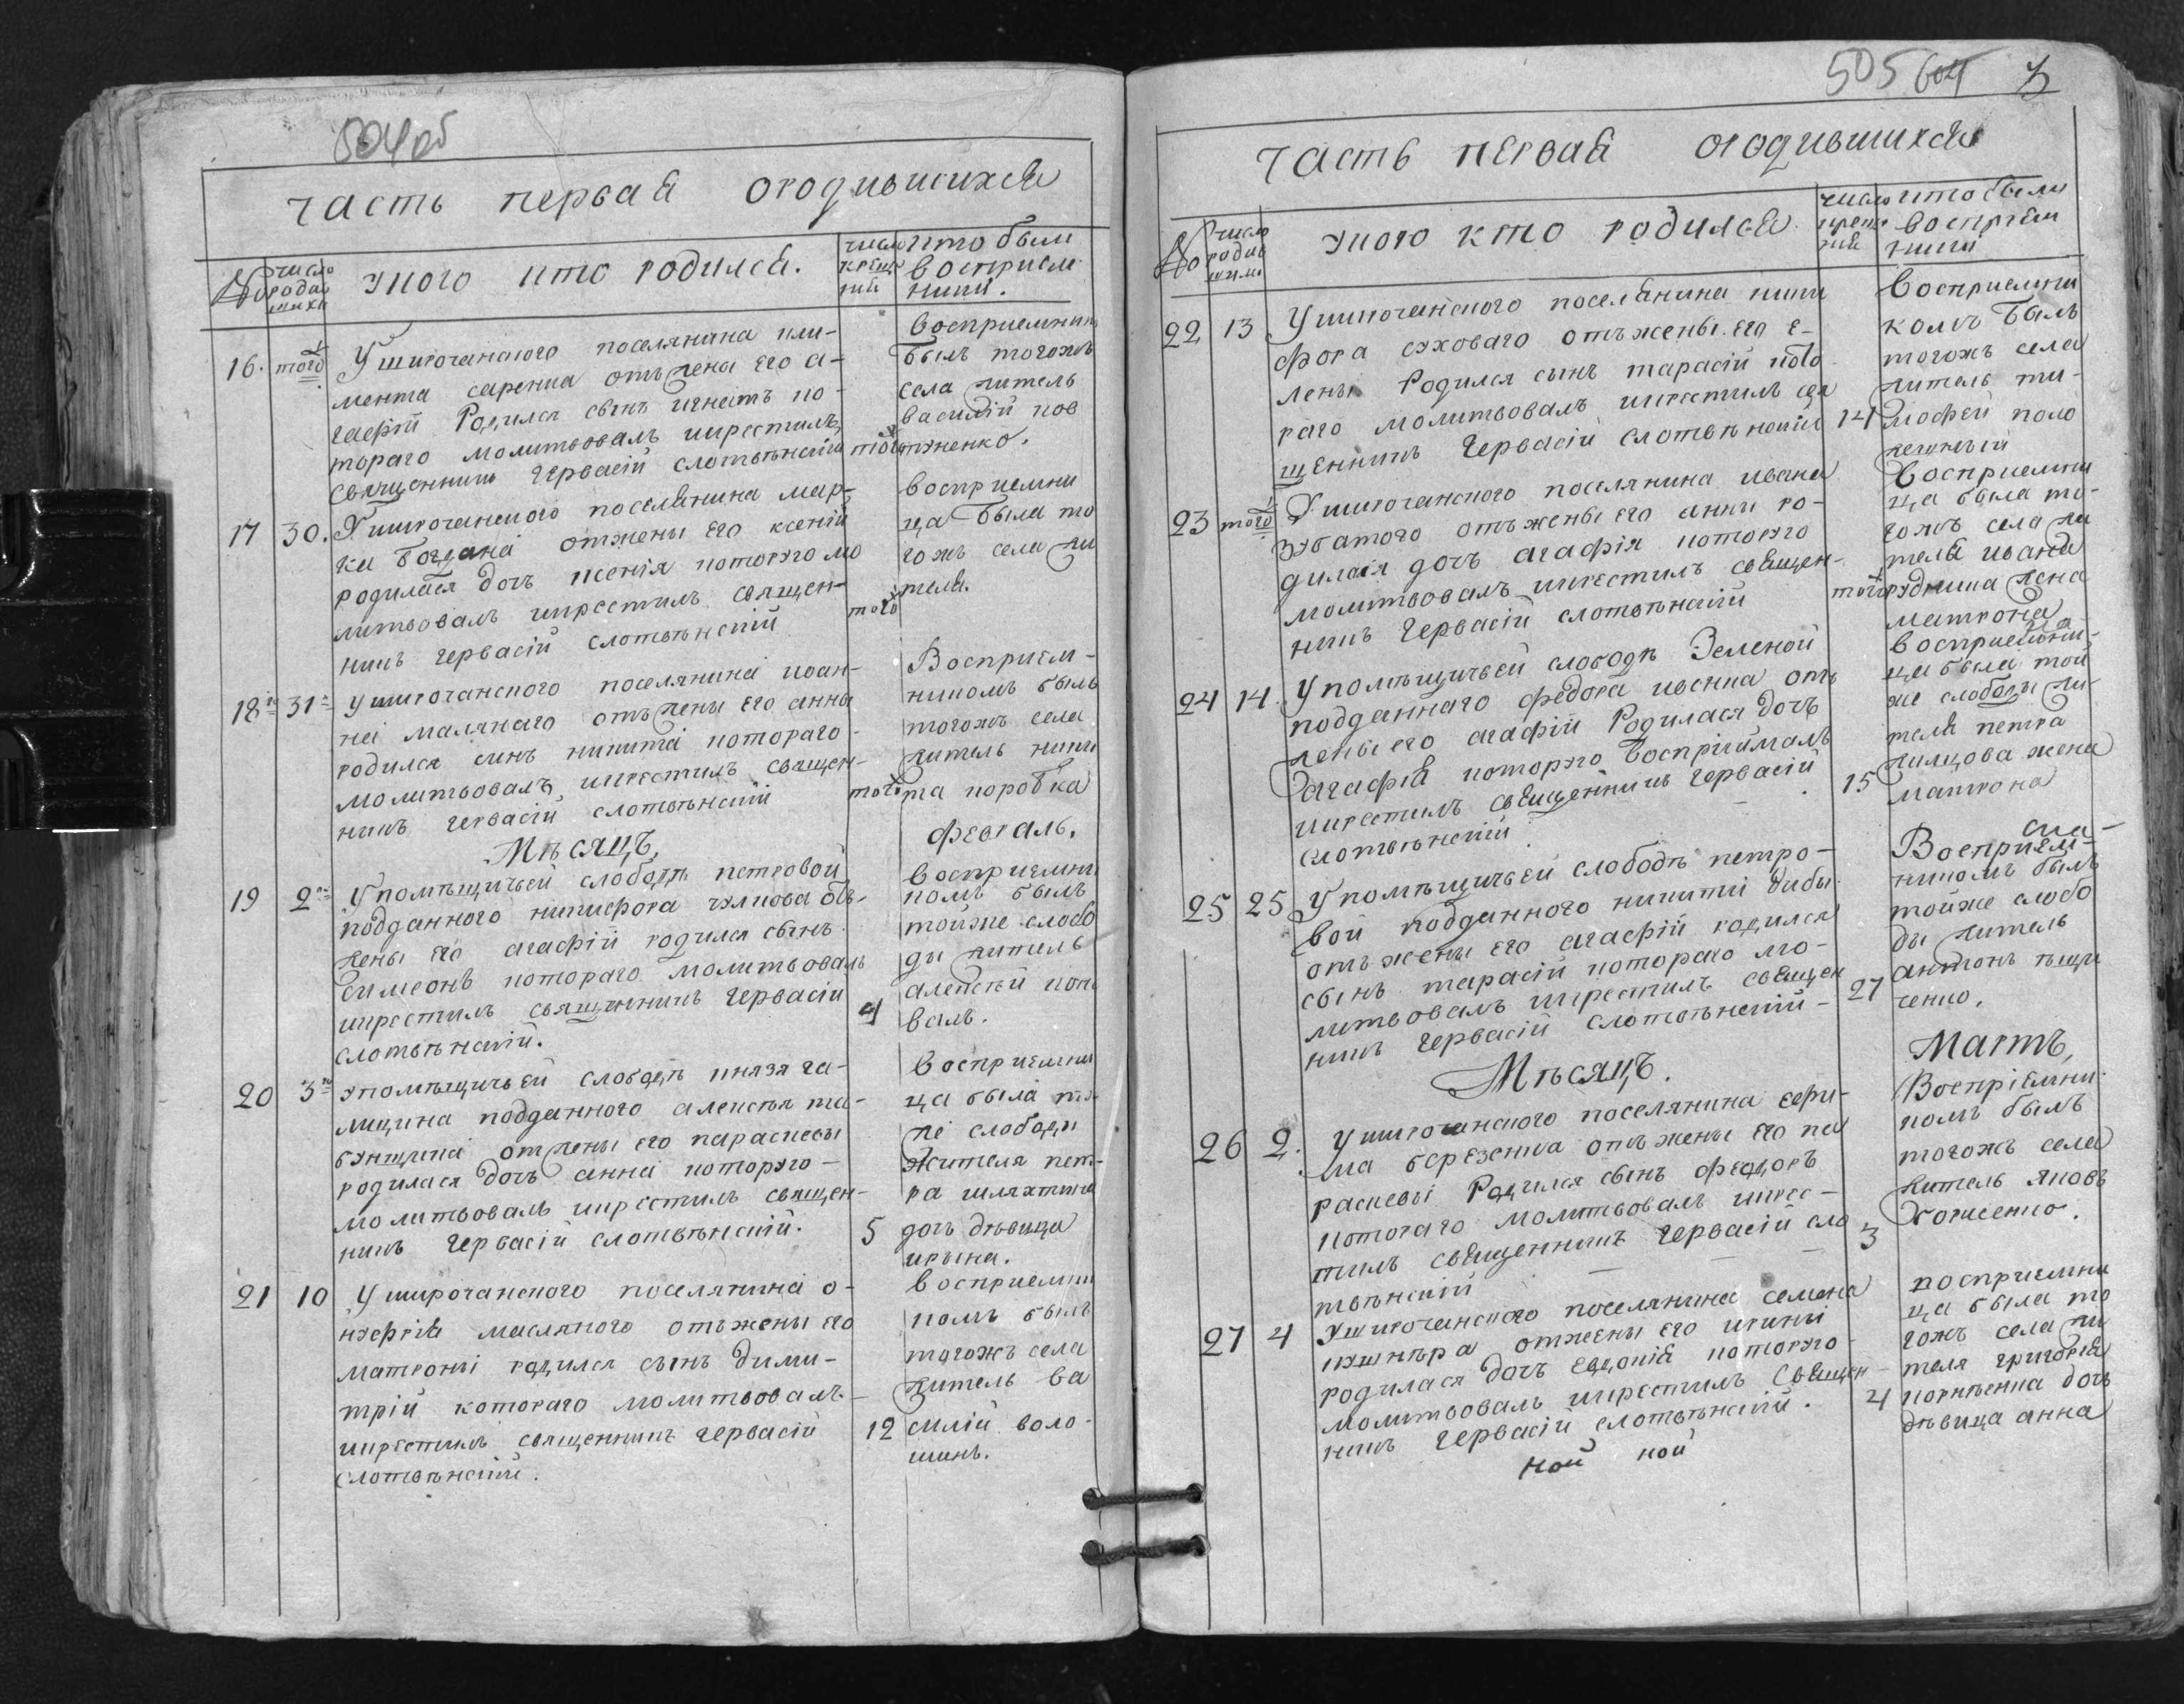 504об
часть первая ородившихся
№ число родившихи
уного кто родился.
число крещений
кто были восприемники.
16. того
У широчанского поселянина кли-
мента саренка отъ жены его а-
гафій Родился сынъ игнатъ ко-
тораго молитвовалъ икрестилъ
священникъ Гервасій слотвѣнскій
того
восприемник
былъ тогожъ
села житель
василій ков
туненко.
17 30.
У широчанского поселянина мар-
ка отжены его ксеній
родилася дочь ксенія которую мо
литвовалъ икрестилъ священ-
никъ Гервасій слотвѣнскій
того
восприемни
ца была то
гожъ села жи
теля.
18 31
у широчанского поселянина иоан-
на малянаго отъ жены его анны
родился синъ никита котораго
молитвовалъ икрестилъ священ-
никъ гервасій слотвѣнскій
того
Восприем-
никомъ былъ
тогожъ села
житель ники
та коробка
Мѣсяцъ,
февраль.
19 2
У помѣщичьей слободѣ петровой
подданного никифора чулкова отъ
жены его агафій родился сынъ
симеонъ котораго молитвовалъ
икрестилъ священникъ Гервасій
слотвѣнскій.
4
восприемни
комъ былъ
тойже слобо
ди житель
алексѣй коно
валъ.
20 3
упомѣщичьей слободѣ князя га-
лицина подданного алексѣя
отжены его параскевы
родилася дочь анна которую
молитвовалъ икрестилъ священ-
никъ Гервасій слотвѣнскій.
5
восприемни
ца была то
же слободи
жителя пет-
ра
дочь дѣвица
ирына.
21 10
У широчанского поселянина о-
нуфрія масляного отъжены его
матроны родился сынъ дими-
трій котораго молитвовалъ
икрестилъ священникъ гервасій
слотвѣнскій.
12
восприемни
комъ былъ
тогожъ села
житель ва
силій воло-
шинъ.
505 604
часть первая ородившихся
№ число родившими
уного кто родился
число крещений
кто были восприемники
22 13
У широчанского поселянина ники
фора суховаго отъжены его е-
лены Родился сынъ тарасій кото
раго молитвовалъ икрестилъ свя
щенникъ Гервасій слотвѣнскій
14
Восприемни
комъ былъ
тогожъ села
житель ти-
мофей поло
23 того
У широчанского поселянина ивана
зубатого отъжены его анни ро-
дилася дочь агафія которую
молитвовалъ икрестилъ священ-
никъ Гервасій слотвѣнскій
того
Восприемни
ца была то-
гожъ села жи
теля ивана
рудника жена
матрона
24 14.
У помѣщичьей слободѣ Зеленой
подданнаго федора ивенка отъ
жены его агафій Родилася дочь
агафія которую восприймалъ
икрестилъ священникъ Гервасій
слотвѣнскій
15
восприемни-
ца была той
же слободи жи-
теля петра
жена
матрона
25 25
У помѣщичьей слободѣ петро-
вой подданного никити дибы
отъ жены его агафій родился
сынъ тарасій котораго мо-
литвовалъ икрестилъ священ
никъ Гервасій слотвѣнскій
27
Восприем-
никомъ былъ
тойже слобо
ды житель
антонъ
сенко.
Мѣсяцъ.
Мартъ,
26 2.
У широчанского поселянина ефи-
ма березенка отъ жены его па
раскевы Родился сынъ федоръ
котораго молитвовалъ икрес-
тилъ священникъ Гервасій сло
твѣнскій
3
Воспріемни
комъ былъ
тогожъ села
житель яковъ
27 4
Уширочанского поселянина семена
кушнѣра отжены его ирины
родилася дочь евдокія которую
молитвовалъ икрестилъ Священ-
никъ Гервасій слотвѣнскій.
4
восприемни
ца была то
гожъ села жи
теля григорія
корнѣенка дочь
дѣвица анна
ной ной